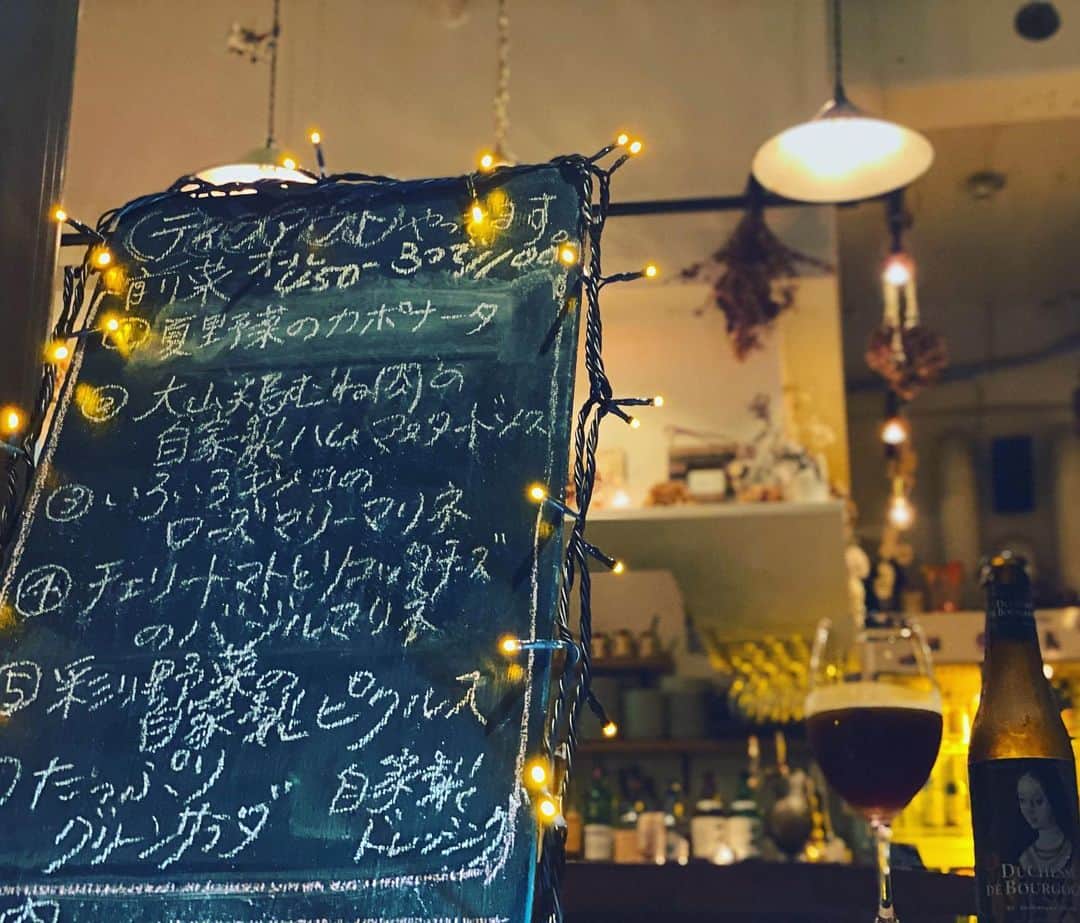 テイクアウトやってます。
前菜 オール 650- 3つで/00
① 夏野菜のカポナータ
② 大山鶏むね肉の
自家製ハム マスタードソース
③ いろいろキノコの
ローズマリーマリネ
④ チェリートマトとリコッタチーズ
のバジルマリネ
⑤ 彩り野菜の
自家製ピクルス
たっぷり
グリーンサラダ
自家製
ドレッシング
肉
DUCHESSE
DE BOURGO